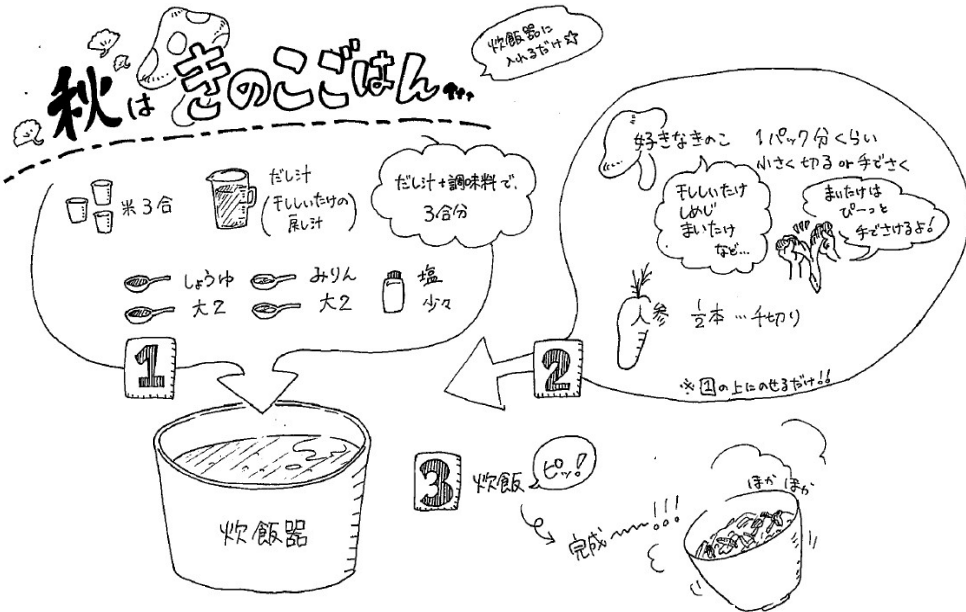 秋はきのこごはん
炊飯器に
入れるだけ☆
米3合
だし汁
(干ししいたけの
戻し汁
だし汁+調味料で、
3合分
しょうゆ
大2
みりん
大2
塩
少々
1
炊飯器
好きなきのこ 1パック分くらい
小さく切る or 手でさく
干ししいたけ
しめじ
まいたけ
など…
まいたけは
ぴーっと
手でさけるよ!
人参 1/2本…千切り
※1の上にのせるだけ!!
2
3 炊飯
ピッ!
完成〜!!!
ほかほか